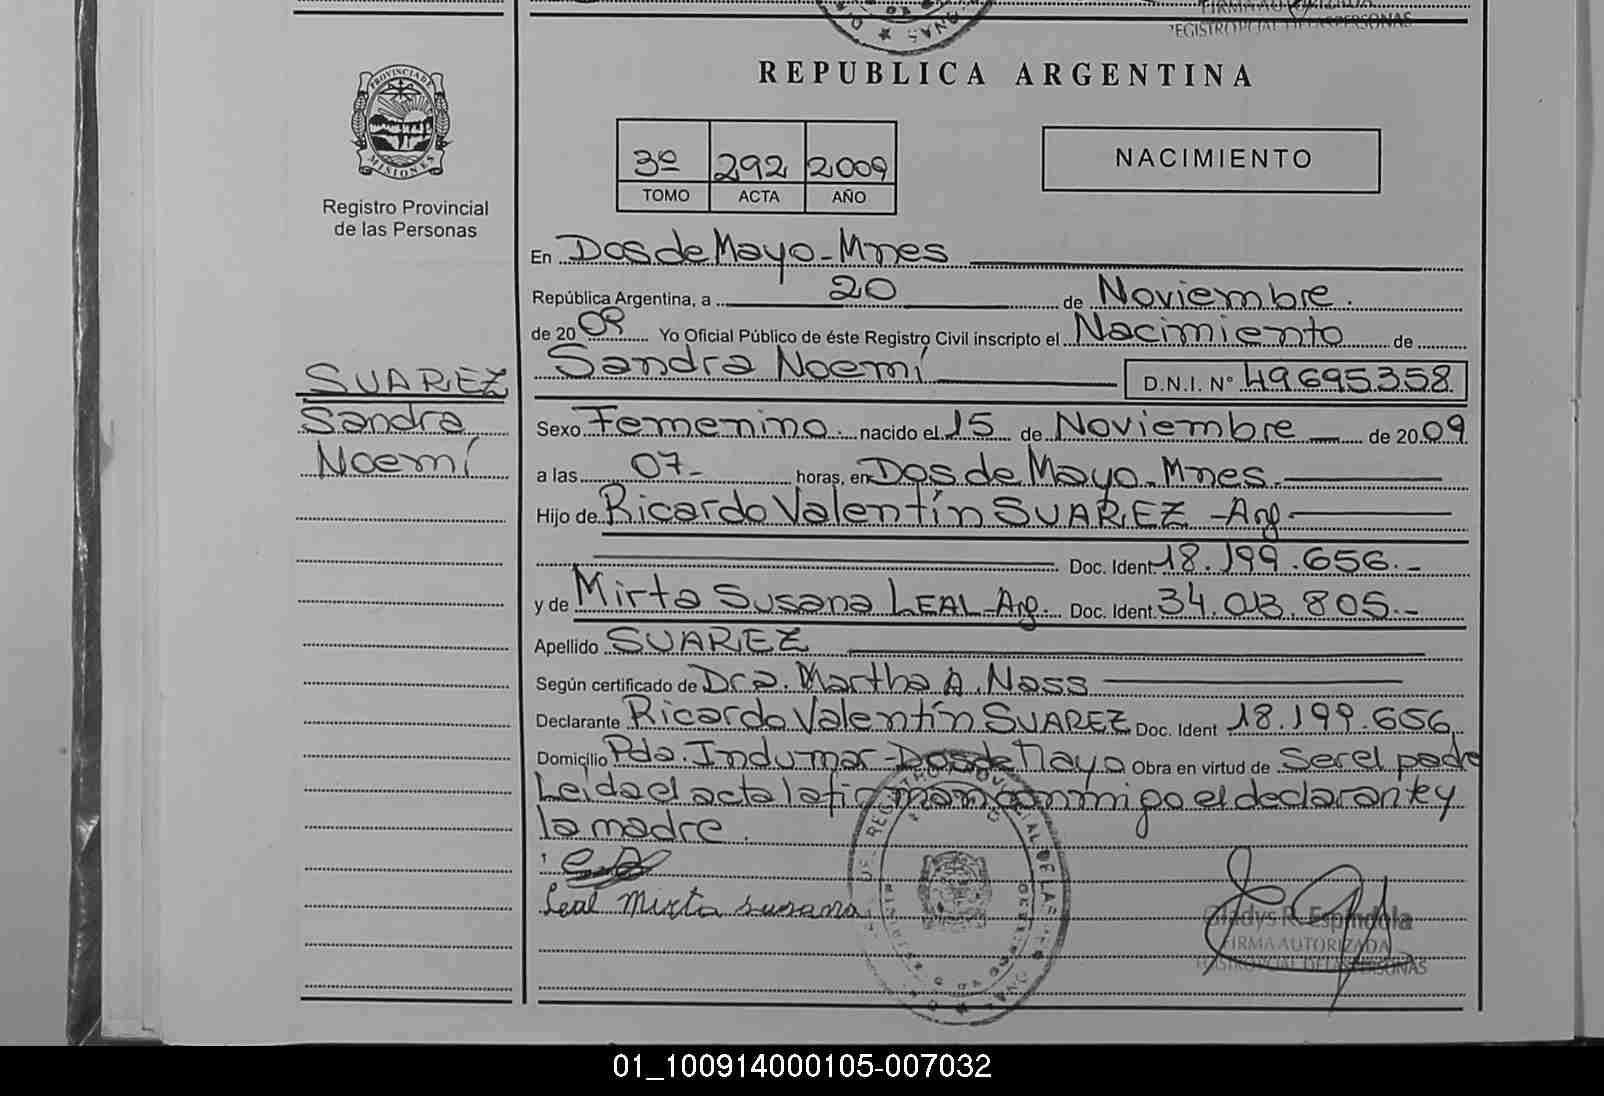 FIRMA AUTORIZADA
REGISTRO PCIAL DE LAS PERSONAS
REPUBLICA ARGENTINA
PROVINCIA DE
MISIONES
Registro Provincial
de las Personas
3º 292 2009
TOMO ACTA AÑO
NACIMIENTO
En Dos de Mayo - Mnes
República Argentina, a 20 de Noviembre.
de 2009 Yo Oficial Público de éste Registro Civil inscripto el Nacimiento de
Sandra Noemí D.N.I. N° 49.695.358
SUAREZ
Sandra
Noemí
Sexo Femenino. nacido el 15 de Noviembre de 2009
a las 07- horas, en Dos de Mayo - Mnes.
Hijo de Ricardo Valentín SUAREZ - Arg.
Doc. Ident. 18.199.656.-
y de Mirta Susana LEAL - Arg. Doc. Ident. 34.013.805.-
Apellido SUAREZ
Según certificado de Dra. Martha A. Nass
Declarante Ricardo Valentín SUAREZ Doc. Ident 18.199.656
Domicilio Pda. Indumar - Dos de Mayo Obra en virtud de Ser el padre
Leida el acta la firman conmigo el declarante y
la madre.
Leal Mirta susana
Gladys R. Espindola
FIRMA AUTORIZADA
REGISTRO PCIAL DE LAS PERSONAS
01_100914000105-007032